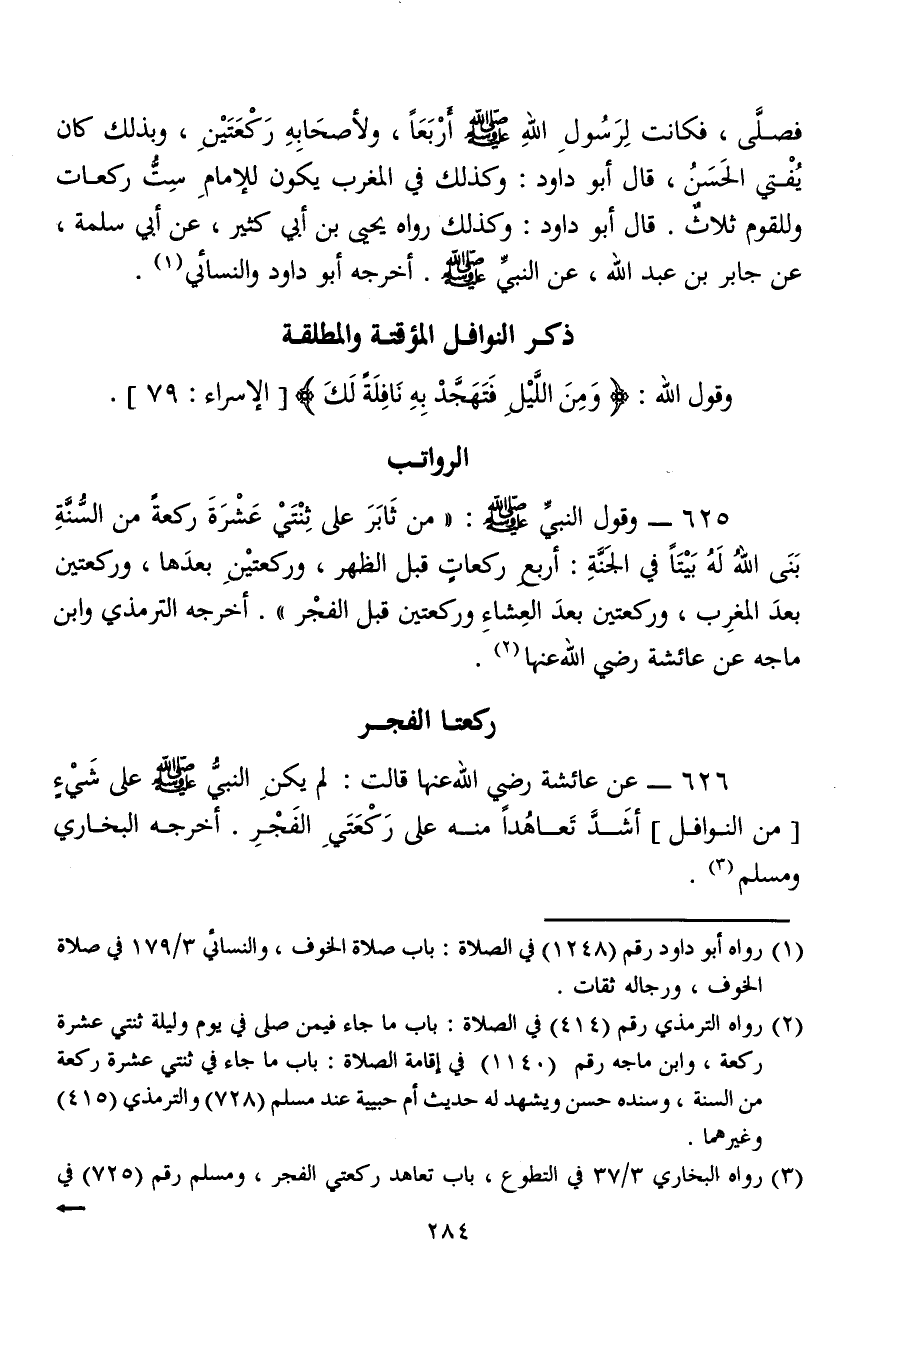 فصلَّى ، فكانت لِرَسُولِ اللهِ ﷺ أَرْبَعَاً ، ولأصحَابِهِ رَكْعَتَيْنِ ، وبذلك كان
يُفْتي الحَسَنُ ، قال أبو داود : وكذلك في المغرب يكون للإمامِ سِتُّ ركعات
وللقوم ثلاثٌ . قال أبو داود : وكذلك رواه يحيى بن أبي كثير ، عن أبي سلمة ،
عن جابر بن عبد الله ، عن النبيِّ ﷺ . أخرجه أبو داود والنسائي(١) .
ذكر النوافل المؤقتة والمطلقة
وقول الله : ﴿ وَمِنَ اللَّيْلِ فَتَهَجَّدْ بِهِ نَافِلَةً لَكَ ﴾ [ الإسراء : ٧٩ ] .
الرواتب
٦٢٥ — وقول النبيِّ ﷺ : « من ثَابَرَ على ثِنْتَيْ عَشْرَةَ ركعةً من السُّنَّةِ
بَنَى اللهُ لَهُ بَيْتَاً في الجَنَّةِ : أربعِ ركعاتٍ قبل الظهر ، وركعتيْنِ بعدَها ، وركعتين
بعدَ المغرِب ، وركعتين بعدَ العِشاءِ وركعتين قبل الفجْر » . أخرجه الترمذي وابن
ماجه عن عائشة رضي الله عنها(٢) .
ركعتا الفجر
٦٢٦ — عن عائشة رضي الله عنها قالت : لم يكنِ النبيُّ ﷺ على شَيْءٍ
[ من النوافل ] أشَدَّ تَعاهُداً منه على رَكْعَتَي الفَجْرِ . أخرجه البخاري
ومسلم(٣) .
(١) رواه أبو داود رقم (١٢٤٨) في الصلاة : باب صلاة الخوف ، والنسائي ١٧٩/٣ في صلاة
الخوف ، ورجاله ثقات .
(٢) رواه الترمذي رقم (٤١٤) في الصلاة : باب ما جاء فيمن صلى في يوم وليلة ثنتي عشرة
ركعة ، وابن ماجه رقم (١١٤٠) في إقامة الصلاة : باب ما جاء في ثنتي عشرة ركعة
من السنة ، وسنده حسن ويشهد له حديث أم حبيبة عند مسلم (٧٢٨) والترمذي (٤١٥)
وغيرهما .
(٣) رواه البخاري ٣٧/٣ في التطوع ، باب تعاهد ركعتي الفجر ، ومسلم رقم (٧٢٥) في
←
٢٨٤